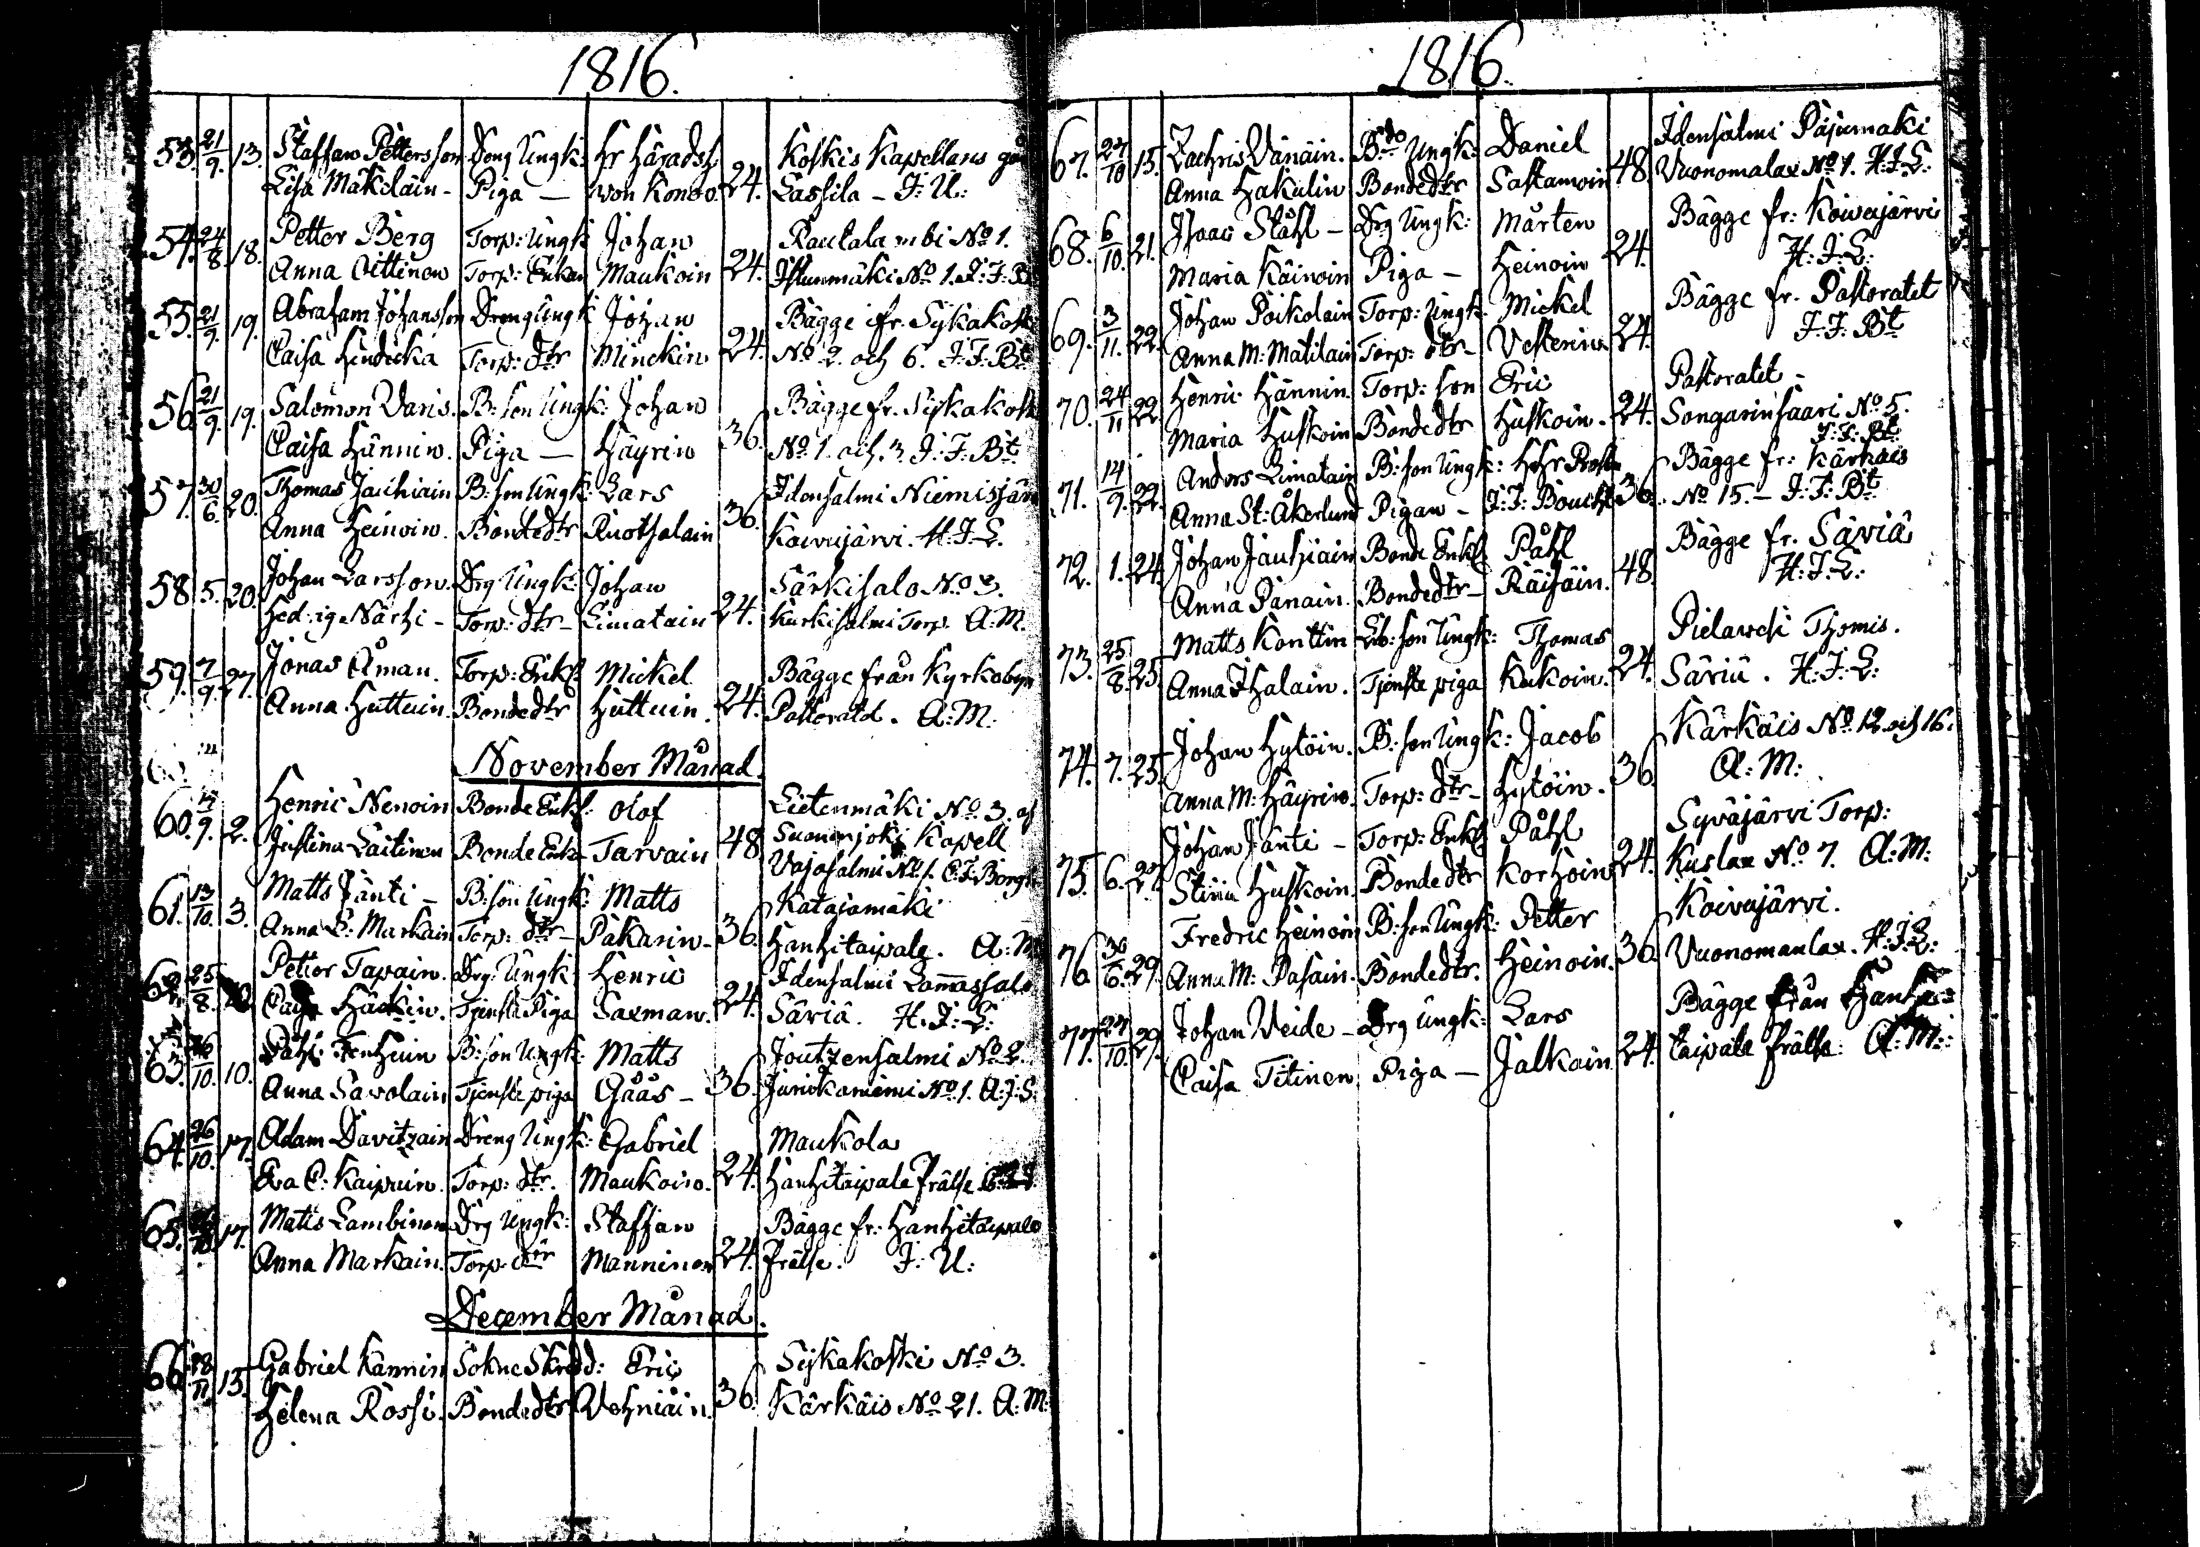 1816.
53. 21/9. 13. Staffan Pettersson Dreng Ungk: Hr Häradsh Koskis Kapellans
Lisa Mäkeläin - Piga — von Konow. 24. Lassila - J: U:
54. 24/8. 18. Petter Berg Torp: Ungk Johan Rautala No 1.
Anna Oittinen Torp: Enkan Maukoin 24. No 1. J: F: B
55. 21/9. 19. Abraham Johansson Dreng Ungk Johan Bägge fr. Sykäkoski
Caisa Hindicka Torp: dtr Minckin 24. No 2. och 6. J: F: Bt
56. 21/9. 19. Salomon Varis. B: son Ungk: Johan Bägge fr. Sykäkosk
Caisa Hännin. Piga — Häyrin 36. No 1. och 3. J: F: Bt
57. 30/6. 20. Thomas Jauhiain B: son Ungk: Lars Idensalmi Niemisjär
Anna Heinoin. Bondedtr Ruotsalain 36. Koivujärvi. H. J. L.
58. 5. 20. Johan Larsson. Drg Ungk: Johan Särkisalo No 3.
Hedvig Närhi - Torp: dtr - Limatain 24. Kurkisalmi Torp. A: M.
59. 7/9. 27. Jonas Åman. Torp: Enkl Mickel Bägge från Kyrkobyn
Anna Huttuin. Bondedtr Huttuin. 24. Pastoratet. A: M:
November Månad.
60. 2. Henric Nenoin Bonde Enkl: Olof Lietenmäki No 3. af
Justina Laitinen Bonde Enka Tarvain 48 Suonenjoki Kapell
Vajasalmi No 1.
61. 13/10. 3. Matts Jänti - B: son Ungk: Matts Katajamäki
Anna L: Markain Torp: dtr - Pakarin - 36. Hankitaipale. A: M
62. 25/8. Petter Tapain. Drg: Ungk: Henric Idensalmi Lamassalo
Caisa Häckin. Tjenste Piga Saxman. 24. Säviä. H. J: L:
63. 26/10. 10. Påhl B: son Ungk: Matts Joutzensalmi No 2.
Anna Savolain Tjenste piga Gåås - 36. No 1. A: J: S:
64. 26/10. 17. Adam Davitzain Dreng Ungk: Gabriel Maukola
Eva C: Kaipuin. Torp: dtr. Maukoin. 24. Hankitaipale Frälse
65. 17. Matts Lambinen Drg Ungk: Staffan Bägge fr: Hankitaipale
Anna Markain. Torp. dtr Manninen 24. Frälse. J: U:
December Månad.
66. 18/11. 15. Gabriel Kännin Sokne Skredd: Eric Sykäkoski No 3.
Helena Rossi. Bondedtr Vehniäin. 36. Kärkäis No 21. A: M:
1816.
67. 27/10 15. Zachris Vänäin. Bdo Ungk: Daniel Idensalmi Pajumäki
Anna Hakulin Bondedtr Sastamoin 48. Vuonomalax No 1. H. J. L:
68. 6/10. 21. Isaac Ståhl - Drg Ungk: Mårten Bägge fr: Koivujärvi
Maria Käinoin Piga - Heinoin 24. H: J: L:
69. 3/11. 22. Johan Poikolain Torp: Ungk: Mickel Bägge fr. Pastoratet
Anna M: Matilain Torp: dtr - Vesterin. 24. J: F: Bt
70. 24/11 22. Henric Hännin. Torp: son Eric Pastoratet -
Maria Huskoin Bondedtr Huskoin. 24. Songarinsaari No 5.
J: F: Bt
71. 14/9. 22. Anders Limatain B: son Ungk: HrHr Prosten Bägge fr: Kärkäis
Anna St: Åkerlund Pigan - J: F: Boucht 36. No 15. - J: F: Bt
72. 1. 24. Johan Jauhiain Bonde Enkl Påhl Bägge fr. Säviä
Anna Pänäin. Bondedtr - Räisäin. 48. H: J: L:
73. 25/8. 25. Matts Konttin Lb: son Ungk: Thomas Pielavesi Thomis.
Anna Ihalain. Tjenste piga Kukoin. 24. Säviä. H. J: L:
74. 7. 25. Johan Hytöin. B: son Ungk: Jacob Kärkäis No 12 och 16.
Anna M: Häyrin. Torp: dtr - Hytöin. 36. A: M:
75. 6. 27. Johan Jänti - Torp: Enkl Påhl Syväjärvi Torp:
Stina Huskoin. Bondedtr Korhoin 24. Kuslax No 7. A: M:
76. 30/6. 29. Fredric Heinoin B: son Ungk: Petter Koivujärvi.
Anna M: Pasain. Bondedtr. Heinoin. 36. Vuonomanlax. H: J: L:
77. 27/10. 29. Johan Weide - Drg Ungk: Lars Bägge från Hanki-
Caisa Titinen Piga — Jalkain 24. taipale Frälse. A: M: